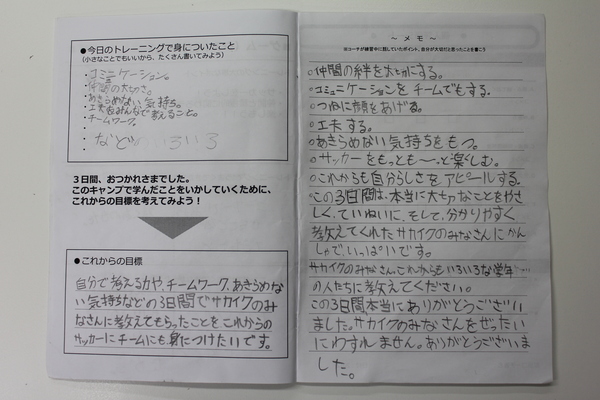 ●今日のトレーニングで身についたこと
(小さなことでもいいから、たくさん書いてみよう)
・コミニケーション。
・仲間の大切さ。
・あきらめない気持ち。
・工夫をみんなで考えること。
・チームワーク。
など いろいろ
3日間、おつかれさまでした。
このキャンプで学んだことをいかしていくために、
これからの目標を考えてみよう!
●これからの目標
自分で考える力や、チームワーク、あきらめな
い気持ちなどの3日間でサカイクのみ
なさんに教えてもらったことをこれからの
サッカーにチームにも身につけたいです。
～ メモ ～
※コーチが練習中に話していたポイント、自分が大切だと思ったことを書こう
○仲間の絆を大切にする。
○コミュニケーションをチームでもする。
○つねに顔をあげる。
○工夫する。
○あきらめない気持ちをもつ。
○サッカーをもっとも〜っと楽しむ。
○これからも自分らしさをアピールする。
この3日間は、本当に大切なことをやさ
しく、ていねいに、そして、分かりやすく
教えてくれたサカイクのみなさんにかん
しゃで、いっぱいです。
サカイクのみなさん、これからもいろいろな学年
の人たちに教えてください。
この3日間本当にありがとうござい
ました。サカイクのみなさんをぜったい
にわすれません。ありがとうございま
した。